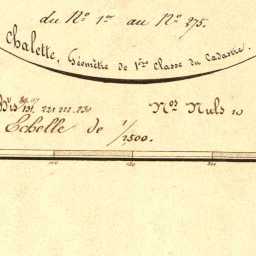 du N.º 1.er au N.º 275.
Chalette, Géomètre de 1ère Classe du Cadastre.
Bis 131. 221 222. 230 N.os Nuls 10
Echelle de 1/2500.
100 150 200